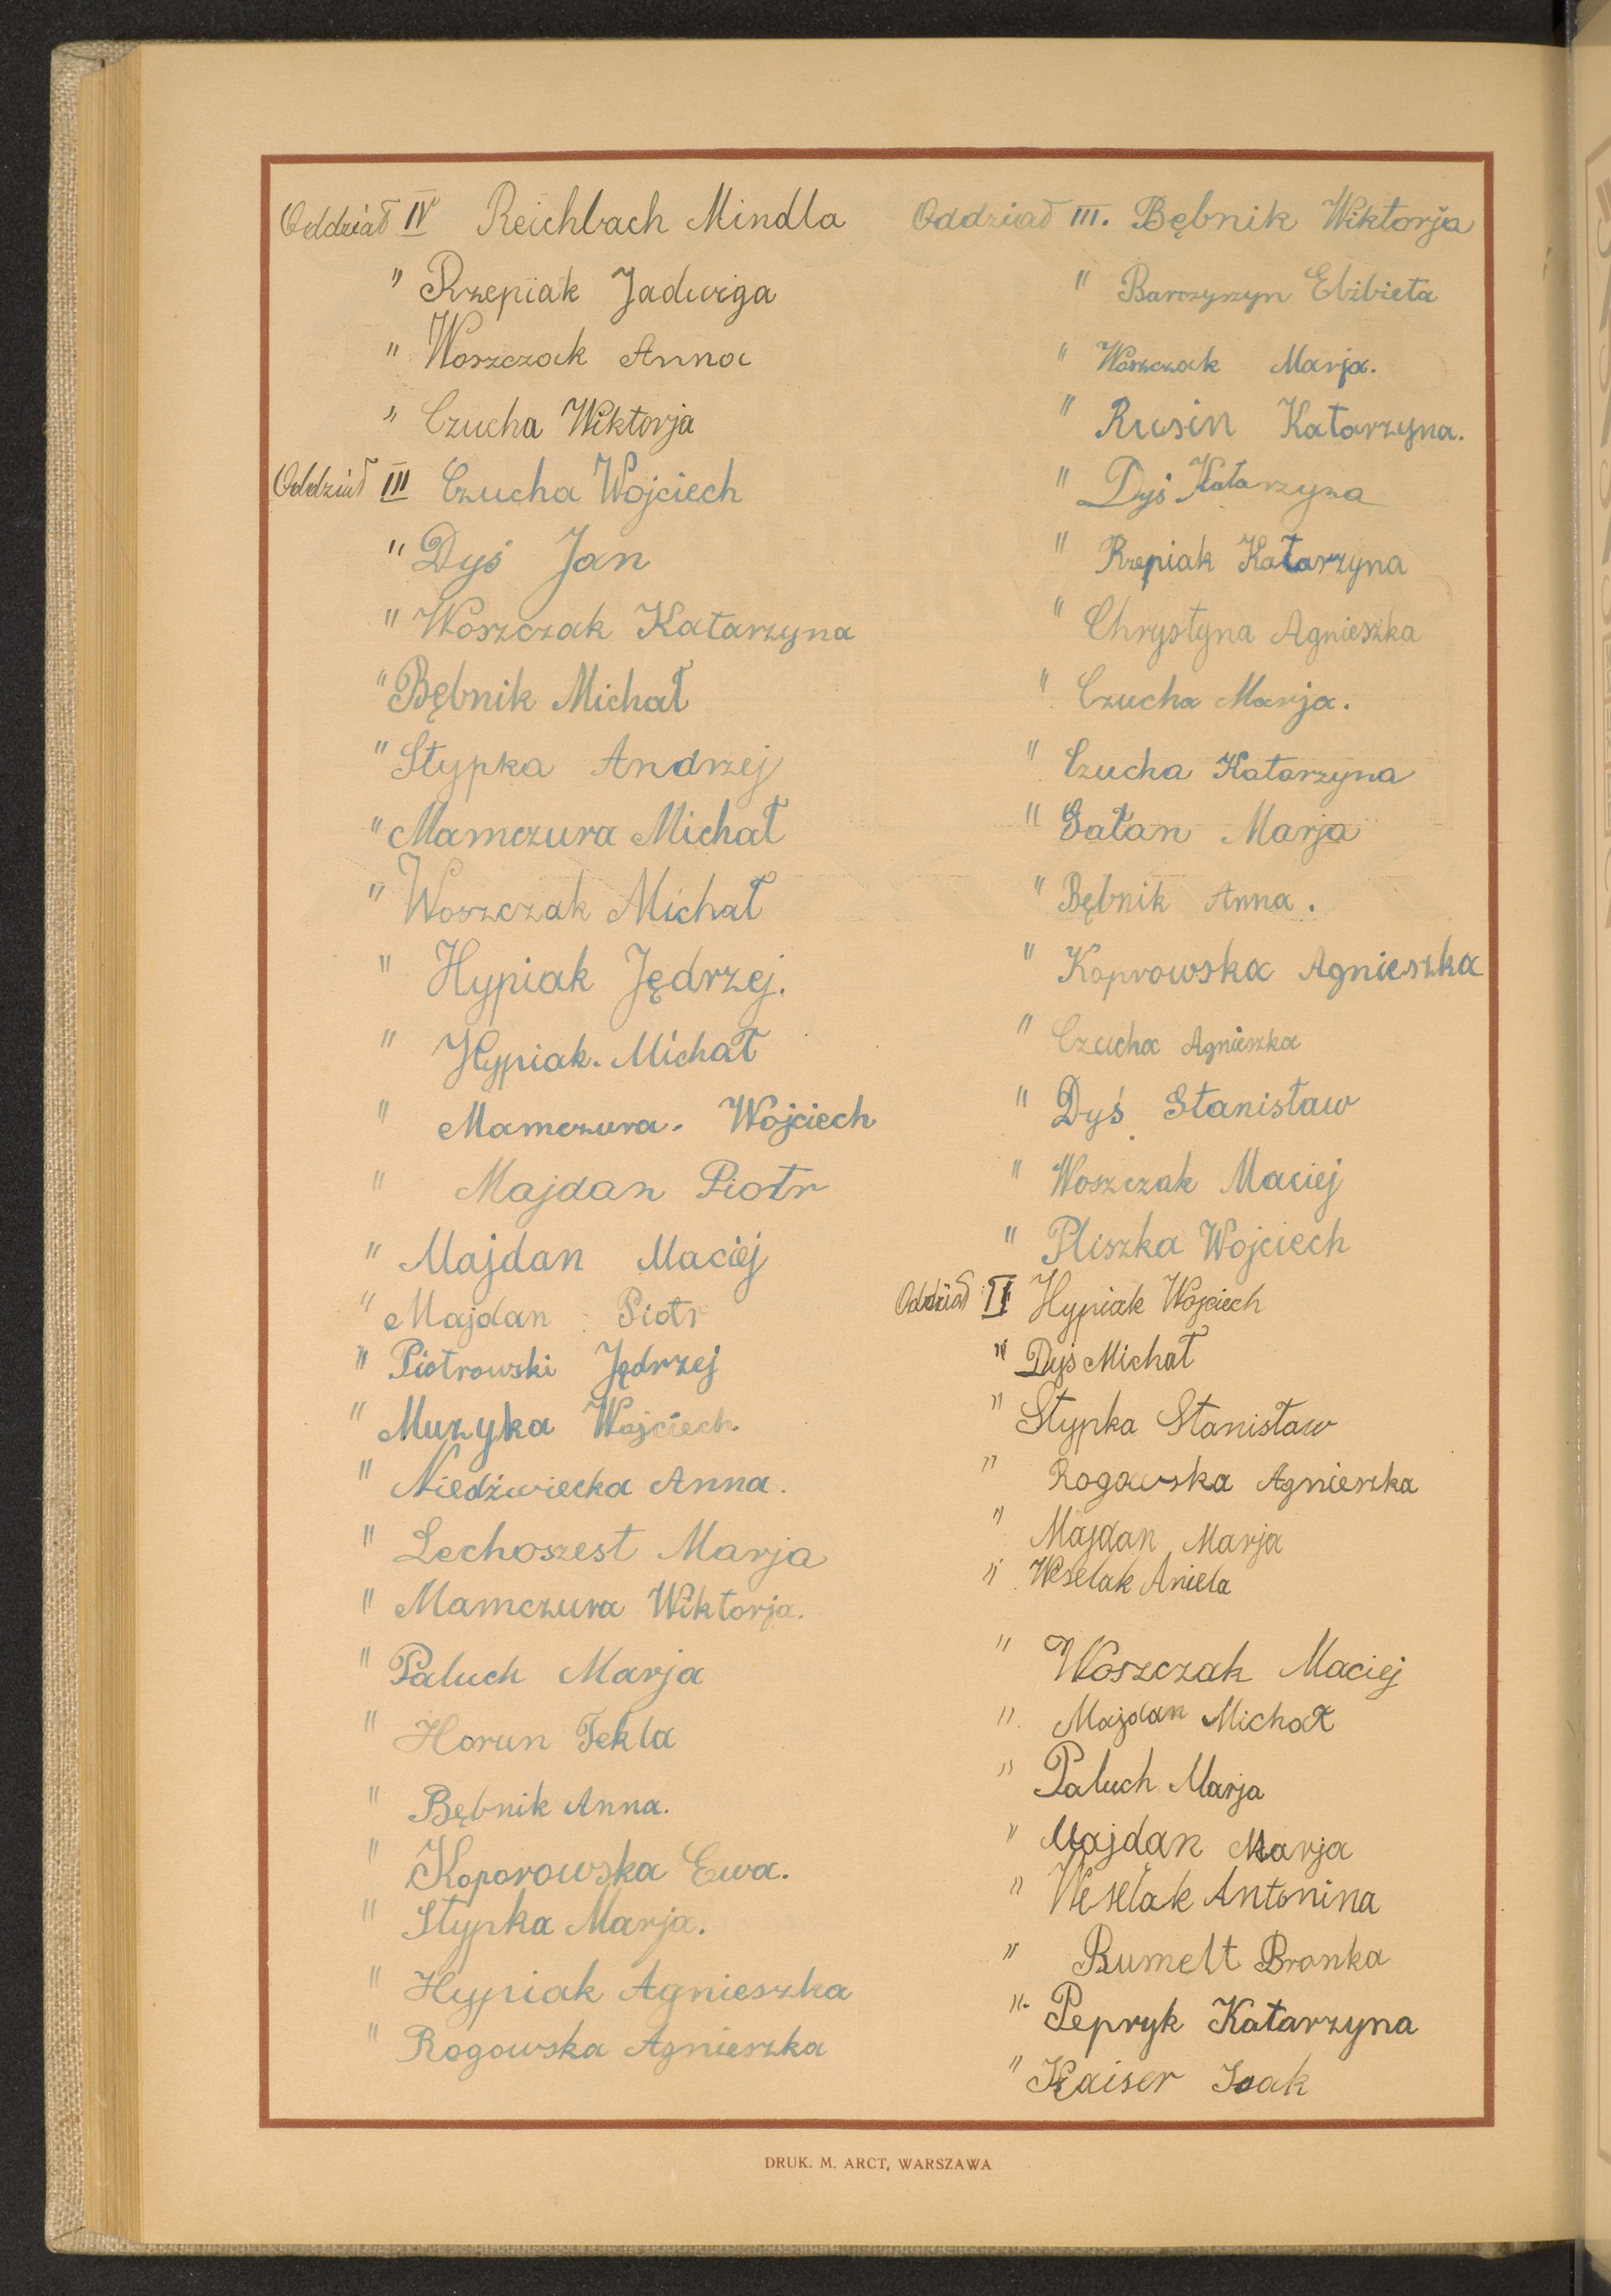 Oddział IV Reichbach Mindla
" Rzepiak Jadwiga
" Woszczak Anna
" Czucha Wiktorja
Oddział III Czucha Wojciech
" Dyś Jan
" Woszczak Katarzyna
" Bębnik Michał
" Stypka Andrzej
" Mamczura Michał
" Woszczak Michał
" Hypiak Jędrzej.
" Hypiak. Michał
" Mamczura. Wojciech
" Majdan Piotr
" Majdan Maciej
" Majdan Piotr
" Piotrowski Jędrzej
" Muzyka Wojciech
" Niedźwiecka Anna.
" Lechoszest Marja
" Mamczura Wiktorja.
" Paluch Marja
" Horun Tekla
" Bębnik Anna.
" Koporowska Ewa.
" Stypka Marja.
" Hypiak Agnieszka
" Rogowska Agnieszka
Oddział III. Bębnik Wiktorja
" Barczyszyn Elżbieta
" Woszczak Marja.
" Rusin Katarzyna.
" Dyś Katarzyna
" Rzepiak Katarzyna
" Chrystyna Agnieszka
" Czucha Marja.
" Czucha Katarzyna
" Gałan Marja
" Bębnik Anna.
" Koprowska Agnieszka
" Czucha Agnieszka
" Dyś Stanisław
" Woszczak Maciej
" Pliszka Wojciech
Oddział II Hypiak Wojciech
" Dyś Michał
" Stypka Stanisław
" Rogowska Agnieszka
" Majdan Marja
" Weselak Aniela
" Woszczak Maciej
" Majdan Michał
" Paluch Marja
" Majdan Marja
" Weselak Antonina
" Rumelt Bronka
" Pepryk Katarzyna
" Kaiser Isak
DRUK. M. ARCT, WARSZAWA